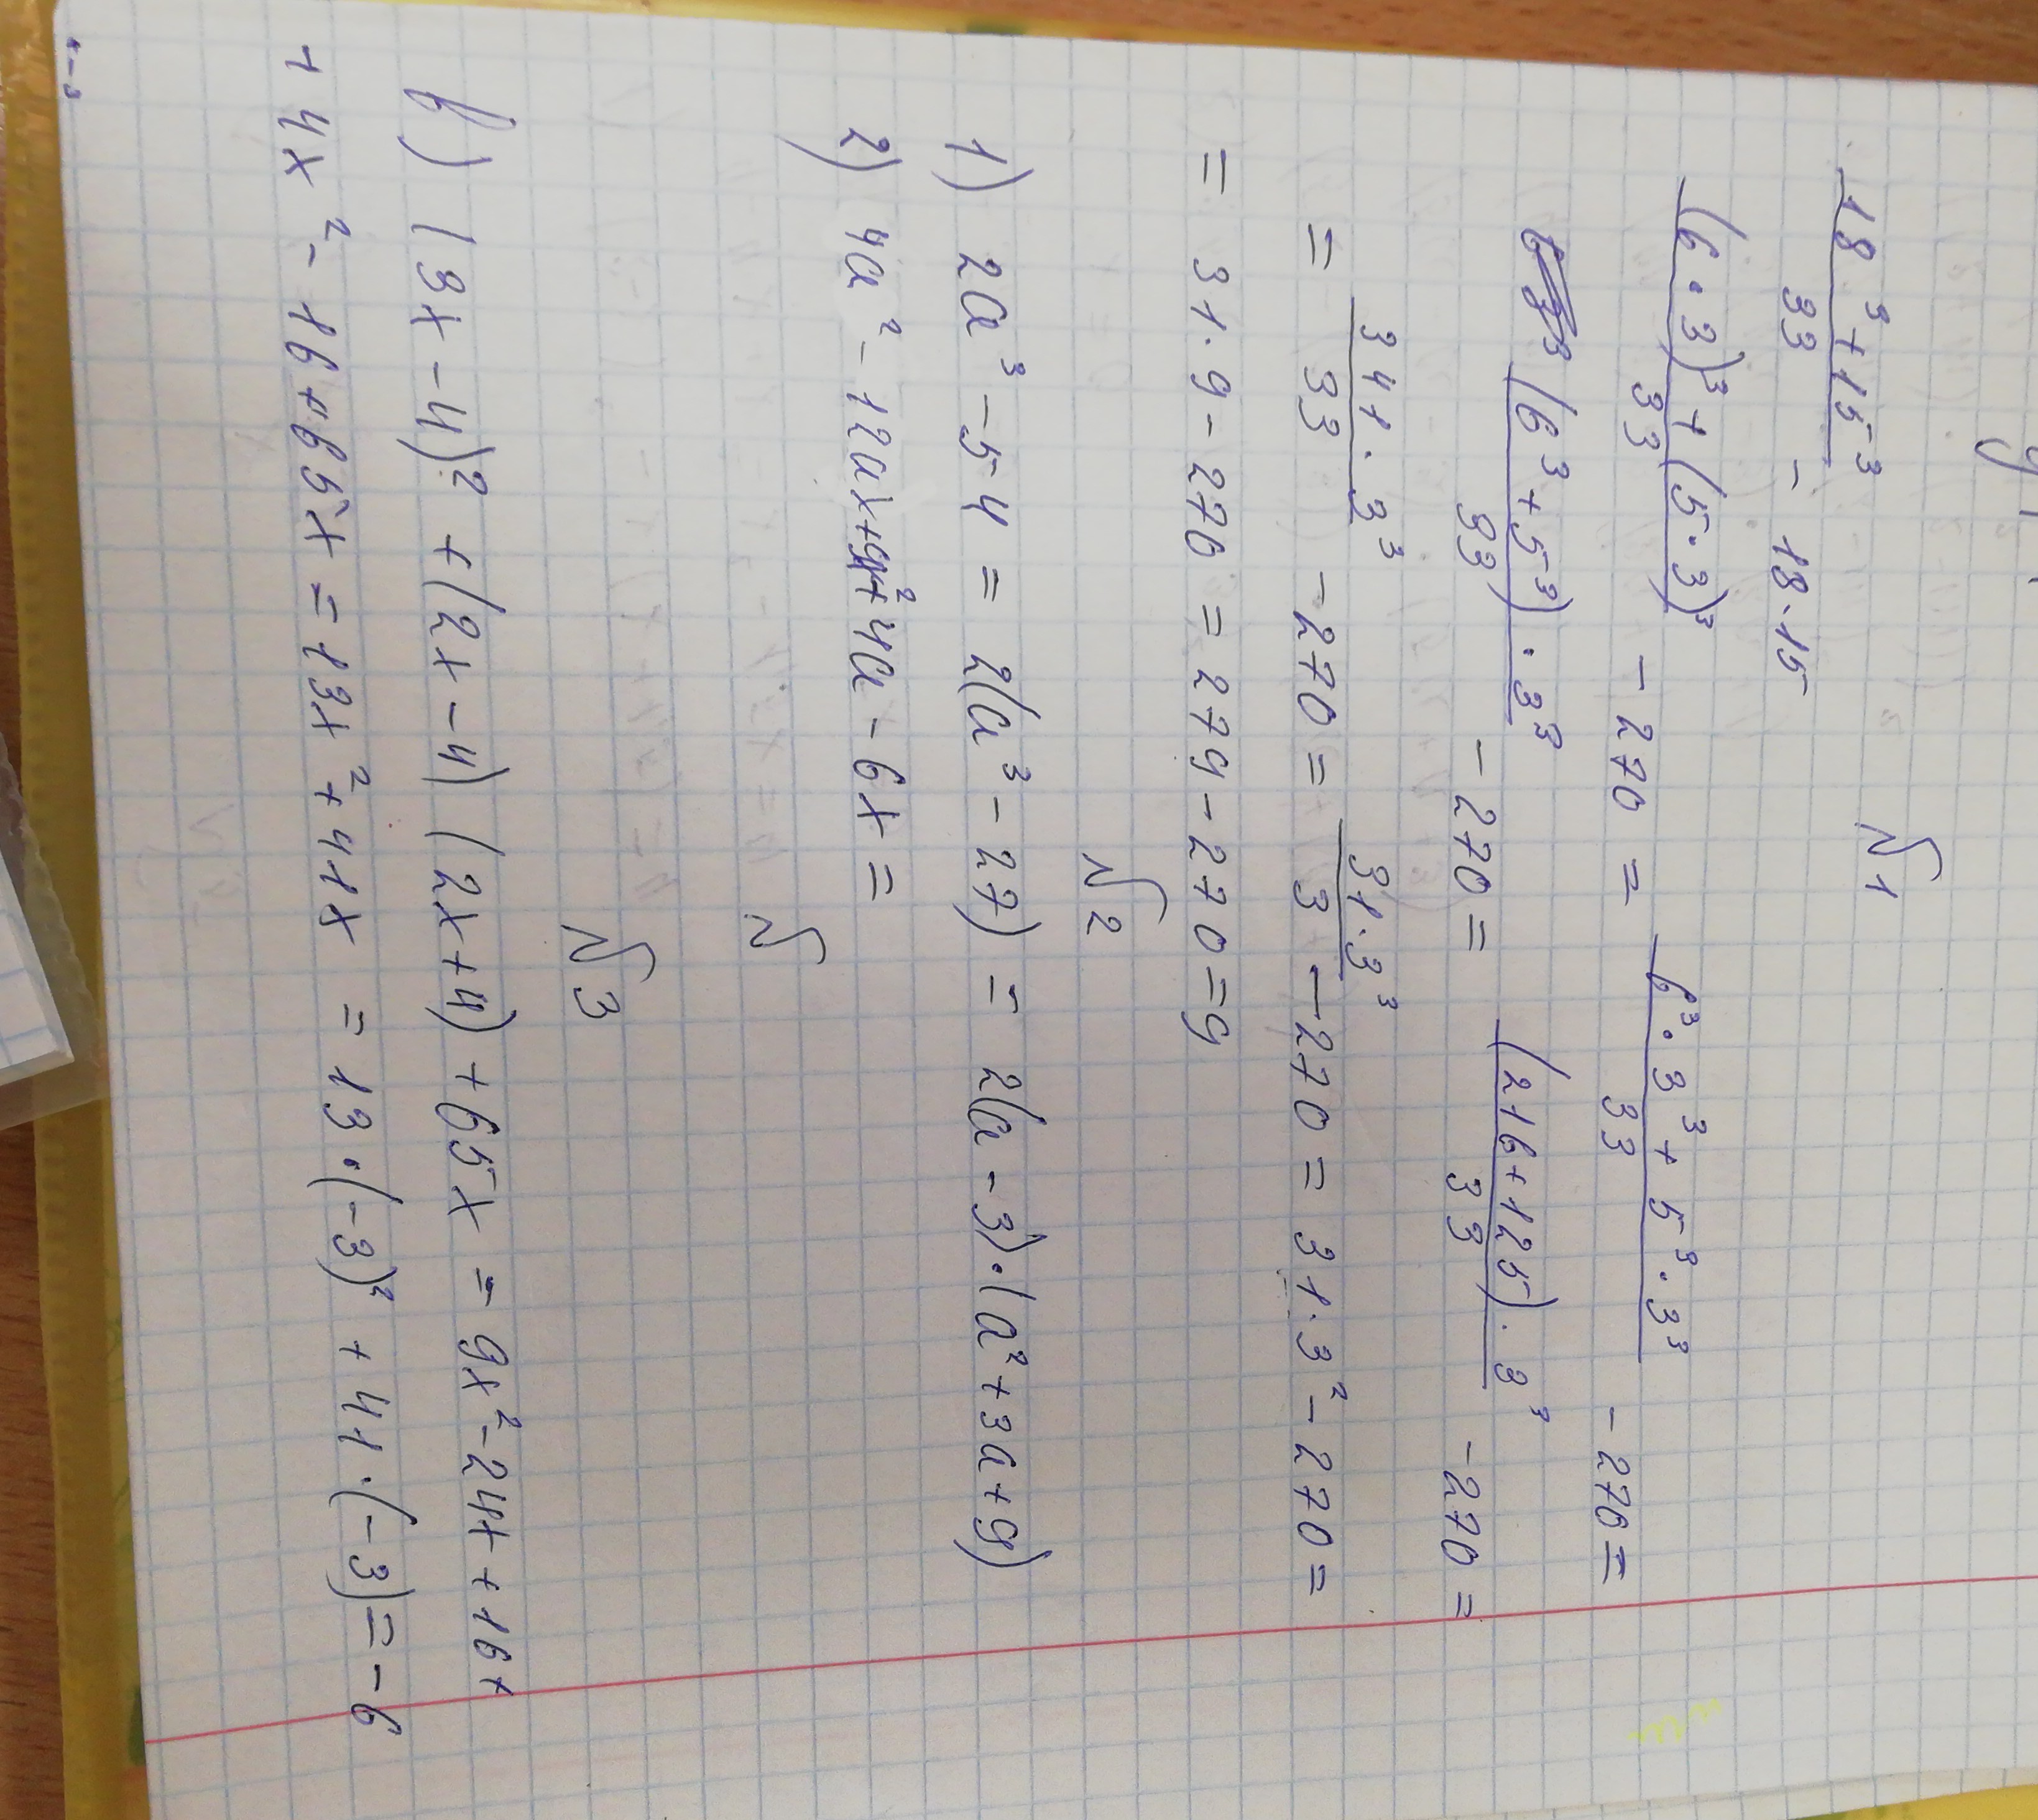 №1
18³+15³/33 - 18·15
(6·3)³+(5·3)³/33 - 270 = 6³·3³+5³·3³/33 - 270 =
(6³+5³)·3³/33 - 270 = (216+125)·3³/33 - 270 =
= 341·3³/33 - 270 = 31·3³/3 - 270 = 31·3² - 270 =
= 31·9 - 270 = 279 - 270 = 9
№2
1) 2a³ - 54 = 2(a³ - 27) = 2(a - 3)·(a² + 3a + 9)
2) 4a² - 12ax + 9x² + 4a - 6x =
№
№3
б) (3x - 4)² + (2x - 4)(2x + 4) + 65x = 9x² - 24x + 16 +
+ 4x² - 16 + 65x = 13x² + 41x = 13·(-3)² + 41·(-3) = -6